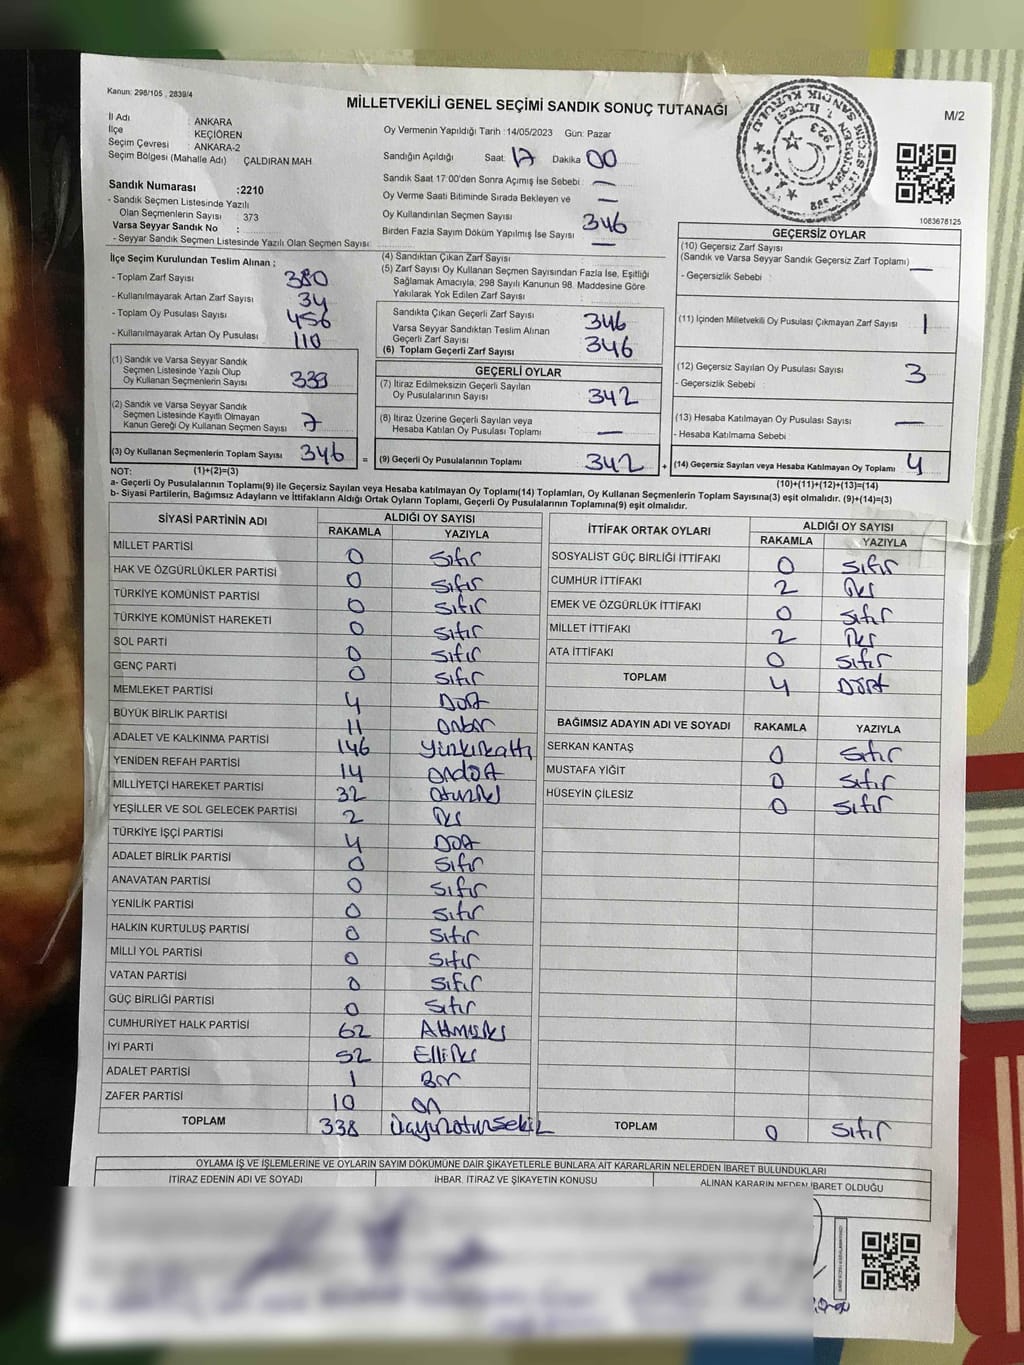 Kanun: 298/105 , 2839/4
MİLLETVEKİLİ GENEL SEÇİMİ SANDIK SONUÇ TUTANAĞI
M/2
İl Adı : ANKARA
İlçe : KEÇİÖREN
Seçim Çevresi : ANKARA-2
Seçim Bölgesi (Mahalle Adı) ÇALDIRAN MAH
Sandık Numarası :2210
- Sandık Seçmen Listesinde Yazılı
Olan Seçmenlerin Sayısı : 373
Varsa Seyyar Sandık No :
- Seyyar Sandık Seçmen Listesinde Yazılı Olan Seçmen Sayısı:
Oy Vermenin Yapıldığı Tarih :14/05/2023 Gün: Pazar
Sandığın Açıldığı Saat: 17 Dakika 00
Sandık Saat 17:00'den Sonra Açımış İse Sebebi : —
Oy Verme Saati Bitiminde Sırada Bekleyen ve —
Oy Kullandırılan Seçmen Sayısı : 346
Birden Fazla Sayım Döküm Yapılmış İse Sayısı : —
1083678125
İlçe Seçim Kurulundan Teslim Alınan ;
- Toplam Zarf Sayısı : 380
- Kullanılmayarak Artan Zarf Sayısı : 34
- Toplam Oy Pusulası Sayısı : 456
- Kullanılmayarak Artan Oy Pusulası : 110
(1) Sandık ve Varsa Seyyar Sandık
Seçmen Listesinde Yazılı Olup
Oy Kullanan Seçmenlerin Sayısı : 339
(2) Sandık ve Varsa Seyyar Sandık
Seçmen Listesinde Kayıtlı Olmayan
Kanun Gereği Oy Kullanan Seçmen Sayısı : 7
(3) Oy Kullanan Seçmenlerin Toplam Sayısı : 346
(4) Sandıktan Çıkan Zarf Sayısı :
(5) Zarf Sayısı Oy Kullanan Seçmen Sayısından Fazla İse, Eşitliği
Sağlamak Amacıyla, 298 Sayılı Kanunun 98. Maddesine Göre
Yakılarak Yok Edilen Zarf Sayısı :
Sandıkta Çıkan Geçerli Zarf Sayısı : 346
Varsa Seyyar Sandıktan Teslim Alınan
Geçerli Zarf Sayısı : 346
(6) Toplam Geçerli Zarf Sayısı
GEÇERLİ OYLAR
(7) İtiraz Edilmeksizin Geçerli Sayılan
Oy Pusulalarının Sayısı : 342
(8) İtiraz Üzerine Geçerli Sayılan veya
Hesaba Katılan Oy Pusulası Toplamı : —
= (9) Geçerli Oy Pusulalarının Toplamı : 342
GEÇERSİZ OYLAR
(10) Geçersiz Zarf Sayısı
(Sandık ve Varsa Seyyar Sandık Geçersiz Zarf Toplamı) : —
- Geçersizlik Sebebi :
(11) İçinden Milletvekili Oy Pusulası Çıkmayan Zarf Sayısı : 1
(12) Geçersiz Sayılan Oy Pusulası Sayısı : 3
- Geçersizlik Sebebi :
(13) Hesaba Katılmayan Oy Pusulası Sayısı : —
- Hesaba Katılmama Sebebi :
+ (14) Geçersiz Sayılan veya Hesaba Katılmayan Oy Toplamı : 4
NOT: (1)+(2)=(3)
(10)+(11)+(12)+(13)=(14)
a- Geçerli Oy Pusulalarının Toplamı(9) ile Geçersiz Sayılan veya Hesaba katılmayan Oy Toplamı(14) Toplamları, Oy Kullanan Seçmenlerin Toplam Sayısına(3) eşit olmalıdır. (9)+(14)=(3)
b- Siyasi Partilerin, Bağımsız Adayların ve İttifakların Aldığı Ortak Oyların Toplamı, Geçerli Oy Pusulalarının Toplamına(9) eşit olmalıdır.
SİYASİ PARTİNİN ADI ALDIĞI OY SAYISI
RAKAMLA YAZIYLA
MİLLET PARTİSİ 0 Sıfır
HAK VE ÖZGÜRLÜKLER PARTİSİ 0 Sıfır
TÜRKİYE KOMÜNİST PARTİSİ 0 Sıfır
TÜRKİYE KOMÜNİST HAREKETİ 0 Sıfır
SOL PARTİ 0 Sıfır
GENÇ PARTİ 0 Sıfır
MEMLEKET PARTİSİ 4 Dört
BÜYÜK BİRLİK PARTİSİ 11 Onbir
ADALET VE KALKINMA PARTİSİ 146 Yüzkırkaltı
YENİDEN REFAH PARTİSİ 14 Ondört
MİLLİYETÇİ HAREKET PARTİSİ 32 Otuziki
YEŞİLLER VE SOL GELECEK PARTİSİ 2 İki
TÜRKİYE İŞÇİ PARTİSİ 4 Dört
ADALET BİRLİK PARTİSİ 0 Sıfır
ANAVATAN PARTİSİ 0 Sıfır
YENİLİK PARTİSİ 0 Sıfır
HALKIN KURTULUŞ PARTİSİ 0 Sıfır
MİLLİ YOL PARTİSİ 0 Sıfır
VATAN PARTİSİ 0 Sıfır
GÜÇ BİRLİĞİ PARTİSİ 0 Sıfır
CUMHURİYET HALK PARTİSİ 62 Altmışiki
İYİ PARTİ 52 Elliiki
ADALET PARTİSİ 1 Bir
ZAFER PARTİSİ 10 On
TOPLAM 338 Üçyüzotuzsekiz
İTTİFAK ORTAK OYLARI ALDIĞI OY SAYISI
RAKAMLA YAZIYLA
SOSYALİST GÜÇ BİRLİĞİ İTTİFAKI 0 Sıfır
CUMHUR İTTİFAKI 2 İki
EMEK VE ÖZGÜRLÜK İTTİFAKI 0 Sıfır
MİLLET İTTİFAKI 2 İki
ATA İTTİFAKI 0 Sıfır
TOPLAM 4 Dört
BAĞIMSIZ ADAYIN ADI VE SOYADI RAKAMLA YAZIYLA
SERKAN KANTAŞ 0 Sıfır
MUSTAFA YİĞİT 0 Sıfır
HÜSEYİN ÇİLESİZ 0 Sıfır
TOPLAM 0 Sıfır
OYLAMA İŞ VE İŞLEMLERİNE VE OYLARIN SAYIM DÖKÜMÜNE DAİR ŞİKAYETLERLE BUNLARA AİT KARARLARIN NELERDEN İBARET BULUNDUKLARI
İTİRAZ EDENİN ADI VE SOYADI İHBAR, İTİRAZ VE ŞİKAYETİN KONUSU ALINAN KARARIN NEDEN İBARET OLDUĞU